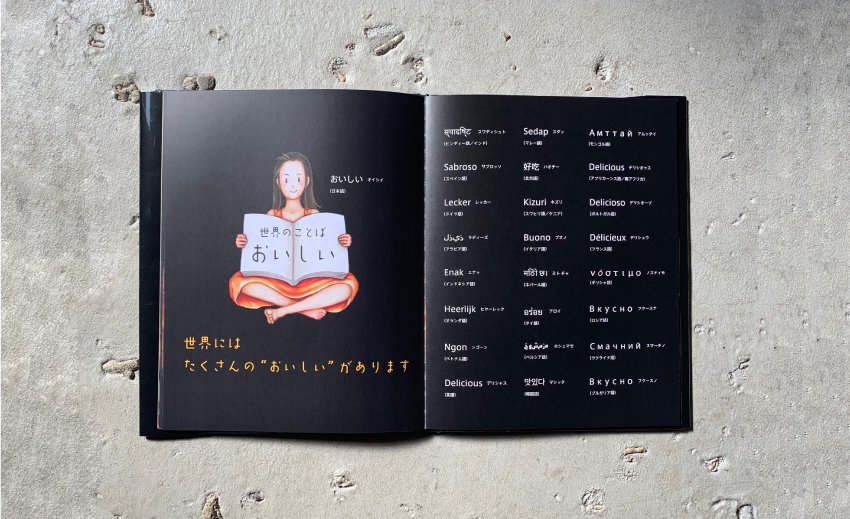 おいしい オイシイ
(日本語)
世界のことば
おいしい
世界には
たくさんの“おいしい”があります
स्वादिष्ट スワディシュト
(ヒンディー語/インド)
Sabroso サブロッソ
(スペイン語)
Lecker レッカー
(ドイツ語)
لذيذ ラディーズ
(アラビア語)
Enak エナッ
(インドネシア語)
Heerlijk ヒヤーレック
(オランダ語)
Ngon ンゴーン
(ベトナム語)
Delicious デリシャス
(英語)
Sedap スダッ
(マレー語)
好吃 ハオチー
(北京語)
Kizuri キズリ
(スワヒリ語/ケニア)
Buono ブオノ
(イタリア語)
ミトチャ
(ネパール語)
อร่อย アロイ
(タイ語)
ホシュマゼ
(ペルシア語)
맛있다 マシッタ
(韓国語)
Амттай アムッタイ
(モンゴル語)
Delicious デリシャス
(アフリカーンス語/南アフリカ)
Delicioso デリシオーゾ
(ポルトガル語)
Délicieux デリシュウ
(フランス語)
νόστιμο ノスティモ
(ギリシャ語)
Вкусно フクースナ
(ロシア語)
Смачний スマチニィ
(ウクライナ語)
Вкусно フクースノ
(ブルガリア語)